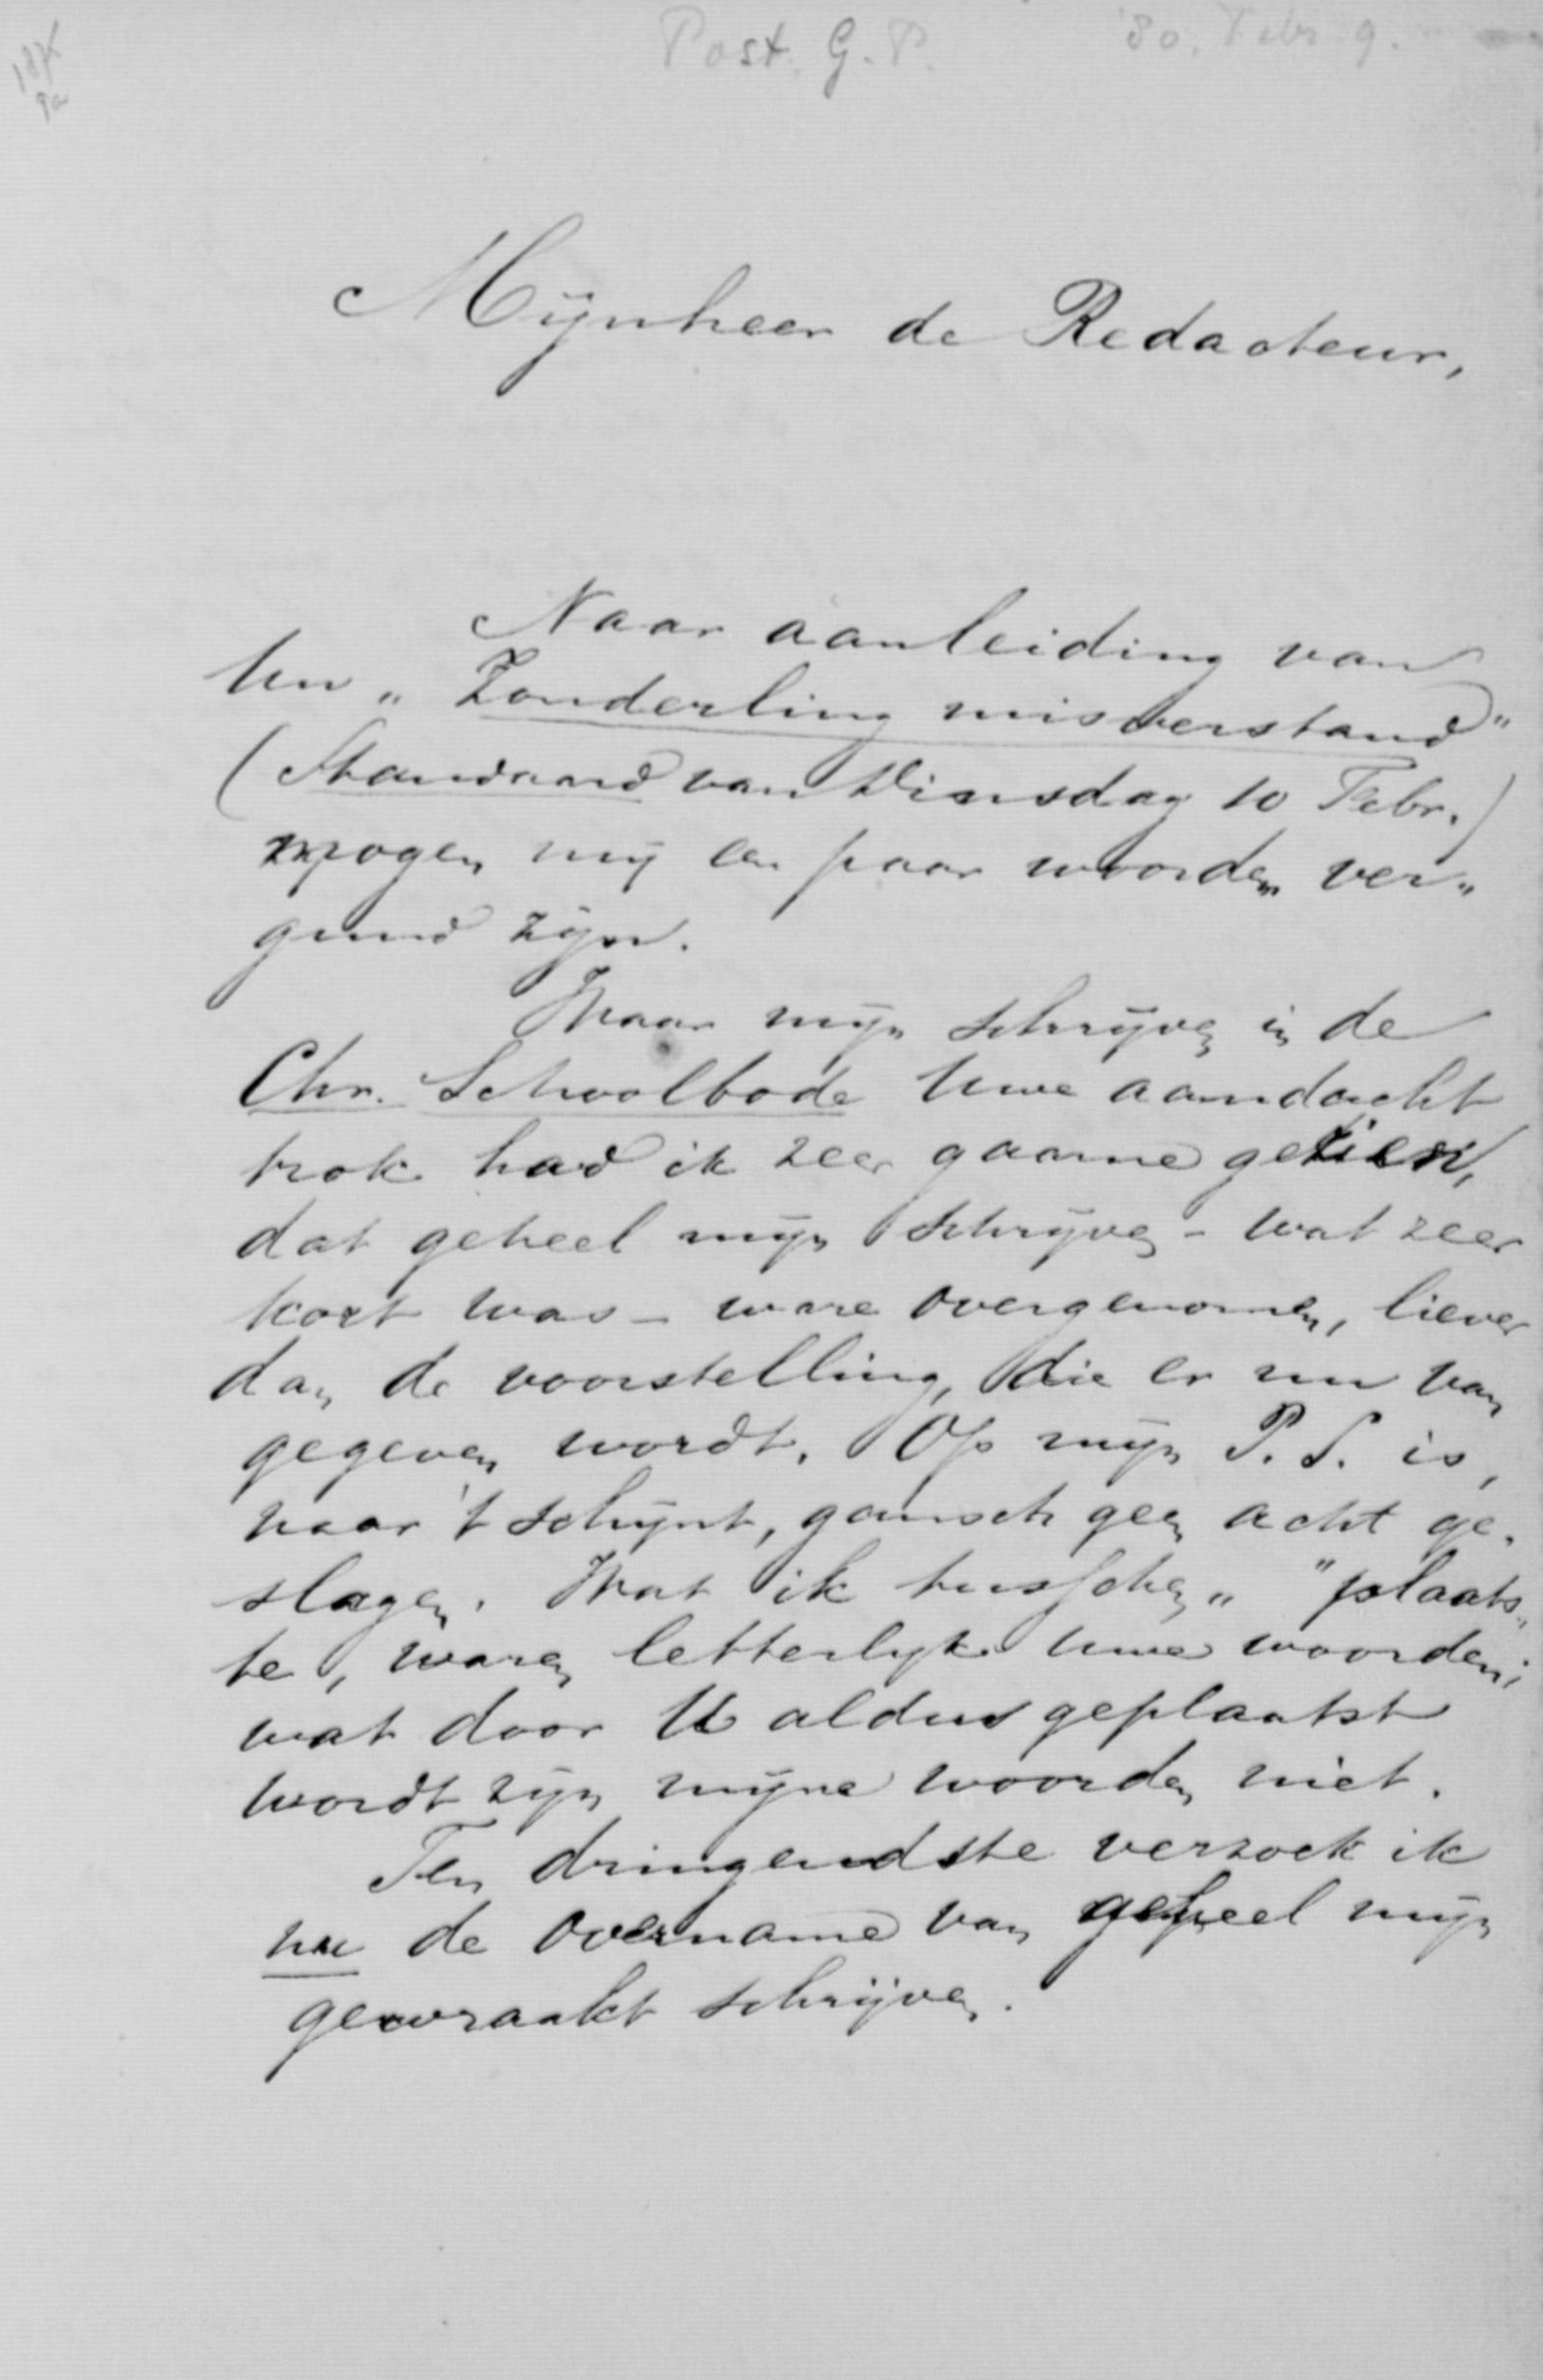 Post. G. P. '80. Febr. 9.
Mijnheer de Redacteur,
Naar aanleiding van
Uw „Zonderling misverstand"
(Standaard van Dinsdag 10 Febr.)
mogen mij een paar woorden ver„
gund zijn.
Waar mijn schrijven in de
Chr. Schoolbode Uwe aandacht
trok had ik zeer gaarne gezien,
dat geheel mijn schrijven - wat zeer
kort was - ware overgenomen, liever
dan de voorstelling, die er nu van
gegeven wordt. Op mijn P.S. is,
naar 't schijnt, gansch geen acht ge„
slagen. Wat ik tusschen „ " plaats„
te, waren letterlijk Uwe woorden;
wat door U aldus geplaatst
wordt zijn mijne woorden niet.
Ten dringendste verzoek ik
nu de overname van geheel mijn
gewraakt schrijven.